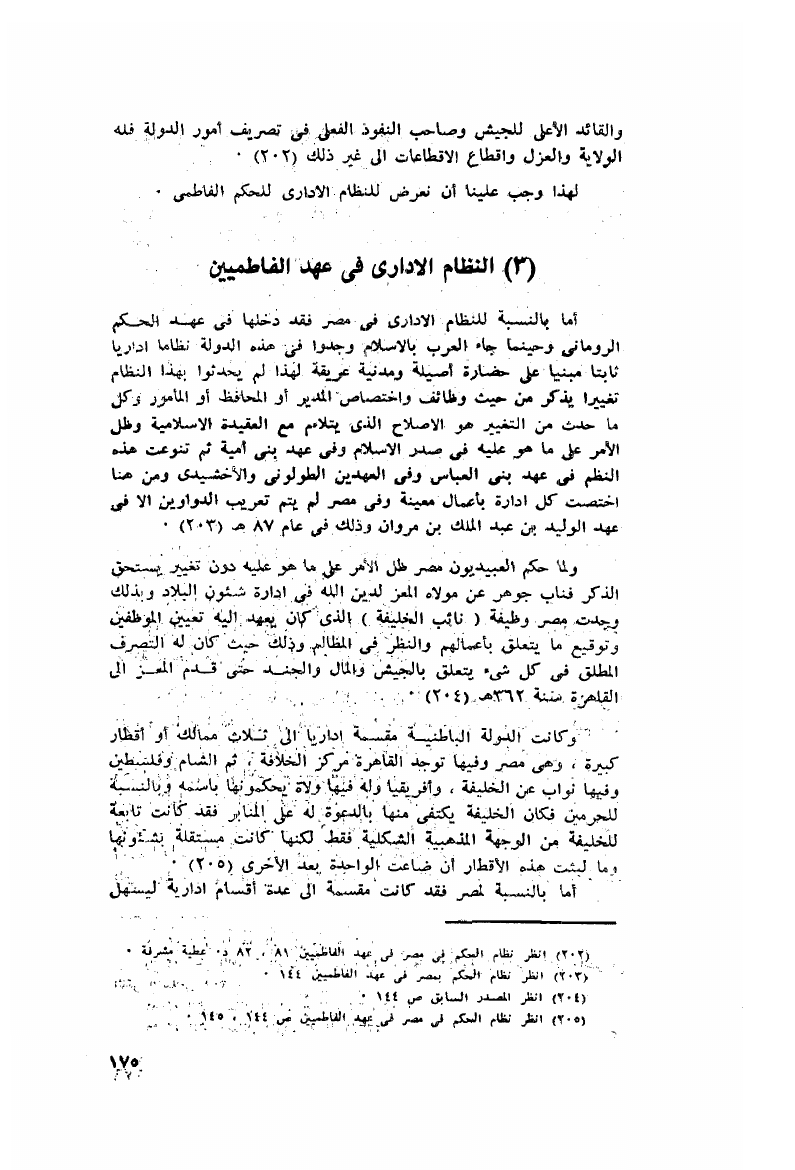 والقائد الأعلى للجيش وصاحب النفوذ الفعلى فى تصريف أمور الدولة فله
الولاية والعزل واقطاع الاقطاعات الى غير ذلك (٢٠٢) ٠
لهذا وجب علينا أن نعرض للنظام الادارى للحكم الفاطمى ٠
(٣) النظام الادارى فى عهد الفاطميين
أما بالنسبة للنظام الادارى فى مصر فقد دخلها فى عهد الحكم
الرومانى وحينما جاء العرب بالاسلام وجدوا فى هذه الدولة نظاما اداريا
ثابتا مبنيا على حضارة أصيلة ومدنية عريقة لهذا لم يحدثوا بهذا النظام
تغييرا يذكر من حيث وظائف واختصاص المدير أو المحافظ أو المأمور وكل
ما حدث من التغيير هو الاصلاح الذى يتلاءم مع العقيدة الاسلامية وظل
الأمر على ما هو عليه فى صدر الاسلام وفى عهد بنى أمية ثم تنوعت هذه
النظم فى عهد بنى العباس وفى العهدين الطولونى والأخشيدى ومن هنا
اختصت كل ادارة بأعمال معينة وفى مصر لم يتم تعريب الدواوين الا فى
عهد الوليد بن عبد الملك بن مروان وذلك فى عام ٨٧ هـ (٢٠٣) ٠
ولما حكم العبيديون مصر ظل الأمر على ما هو عليه دون تغيير يستحق
الذكر فناب جوهر عن مولاه المعز لدين الله فى ادارة شئون البلاد وبذلك
وجدت مصر وظيفة ( نائب الخليفة ) الذى كان يعهد اليه تعيين الموظفين
وتوقيع ما يتعلق بأعمالهم والنظر فى المظالم وذلك حيث كان له التصرف
المطلق فى كل شىء يتعلق بالجيش والمال والجند حتى قدم المعز الى
القاهرة سنة ٣٦٢هـ (٢٠٤) ٠
وكانت الدولة الباطنية مقسمة إداريا الى ثلاث ممالك أو أقطار
كبيرة ، وهى مصر وفيها توجد القاهرة مركز الخلافة ، ثم الشام وفلسطين
وفيها نواب عن الخليفة ، وأفريقيا وله فيها ولاة يحكمونها باسمه وبالنسبة
للحرمين فكان الخليفة يكتفى منها بالدعوة له على المنابر فقد كانت تابعة
للخليفة من الوجهة المذهبية الشكلية فقط لكنها كانت مستقلة بشئونها
وما لبثت هذه الأقطار أن ضاعت الواحدة بعد الأخرى (٢٠٥) ٠
أما بالنسبة لمصر فقد كانت مقسمة الى عدة أقسام ادارية ليسهل
(٢٠٢) انظر نظام الحكم فى مصر فى عهد الفاطميين ٨١ ، ٨٢ د٠ عطية مشرفة ٠
(٢٠٣) انظر نظام الحكم بمصر فى عهد الفاطميين ١٤٤ ٠
(٢٠٤) انظر المصدر السابق ص ١٤٤ ٠
(٢٠٥) انظر نظام الحكم فى مصر فى عهد الفاطميين ص ١٤٤ ، ١٤٥ ٠
١٧٥